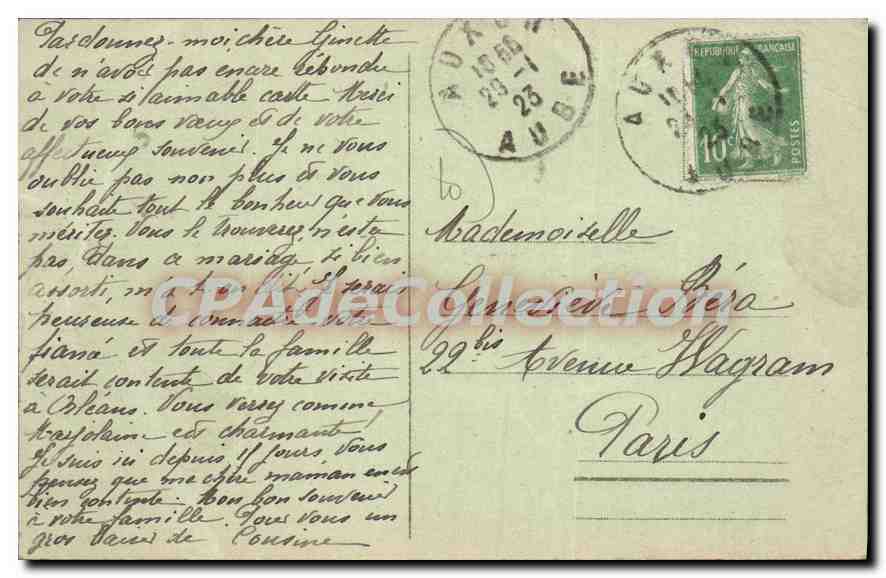 Pardonnez-moi, chère Ginette
de n'avoir pas encore répondu
à votre si aimable carte Merci
de vos bons vœux et de votre
affectueux souvenir. Je ne vous
oublie pas non plus et vous
souhaite tout le bonheur que vous
méritez. Vous le trouverez, n'est ce
pas, dans ce mariage si bien
assorti, m'a-t-on dit. Je serai
heureuse de connaître votre
fiancé et toute la famille
serait contente de votre visite
à Orléans. Vous verrez comme
Marjolaine est charmante!
Je suis ici depuis 15 jours, vous
pensez que ma chère maman en est
bien contente. Mon bon souvenir
à votre famille. Pour vous un
gros baiser de Cousine
AUXON
20 -1
23
AUBE
REPUBLIQUE FRANÇAISE
10c
POSTES
AUX
AUBE
Mademoiselle
Geneviève Réra
22 bis Avenue Wagram
Paris
CPAdeCollection